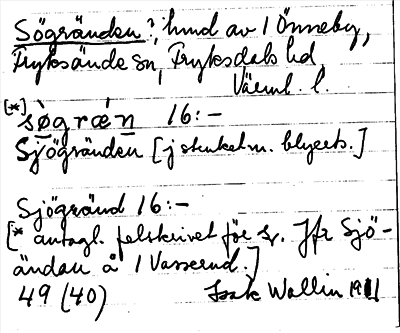 Sögränden? hmd av 1 Önneby,
Fryksände sn, Fryksdals hd,
Värml. l.
[*] søgræn 16:-
Sjögränden [j stenkelm. blyerts.]
Sjögränd 16:-
[* antagl. felskrivet för sr. Jfr Sjö-
ändan å 1 Vasserud.]
49 (40) Isak Wallin 1911